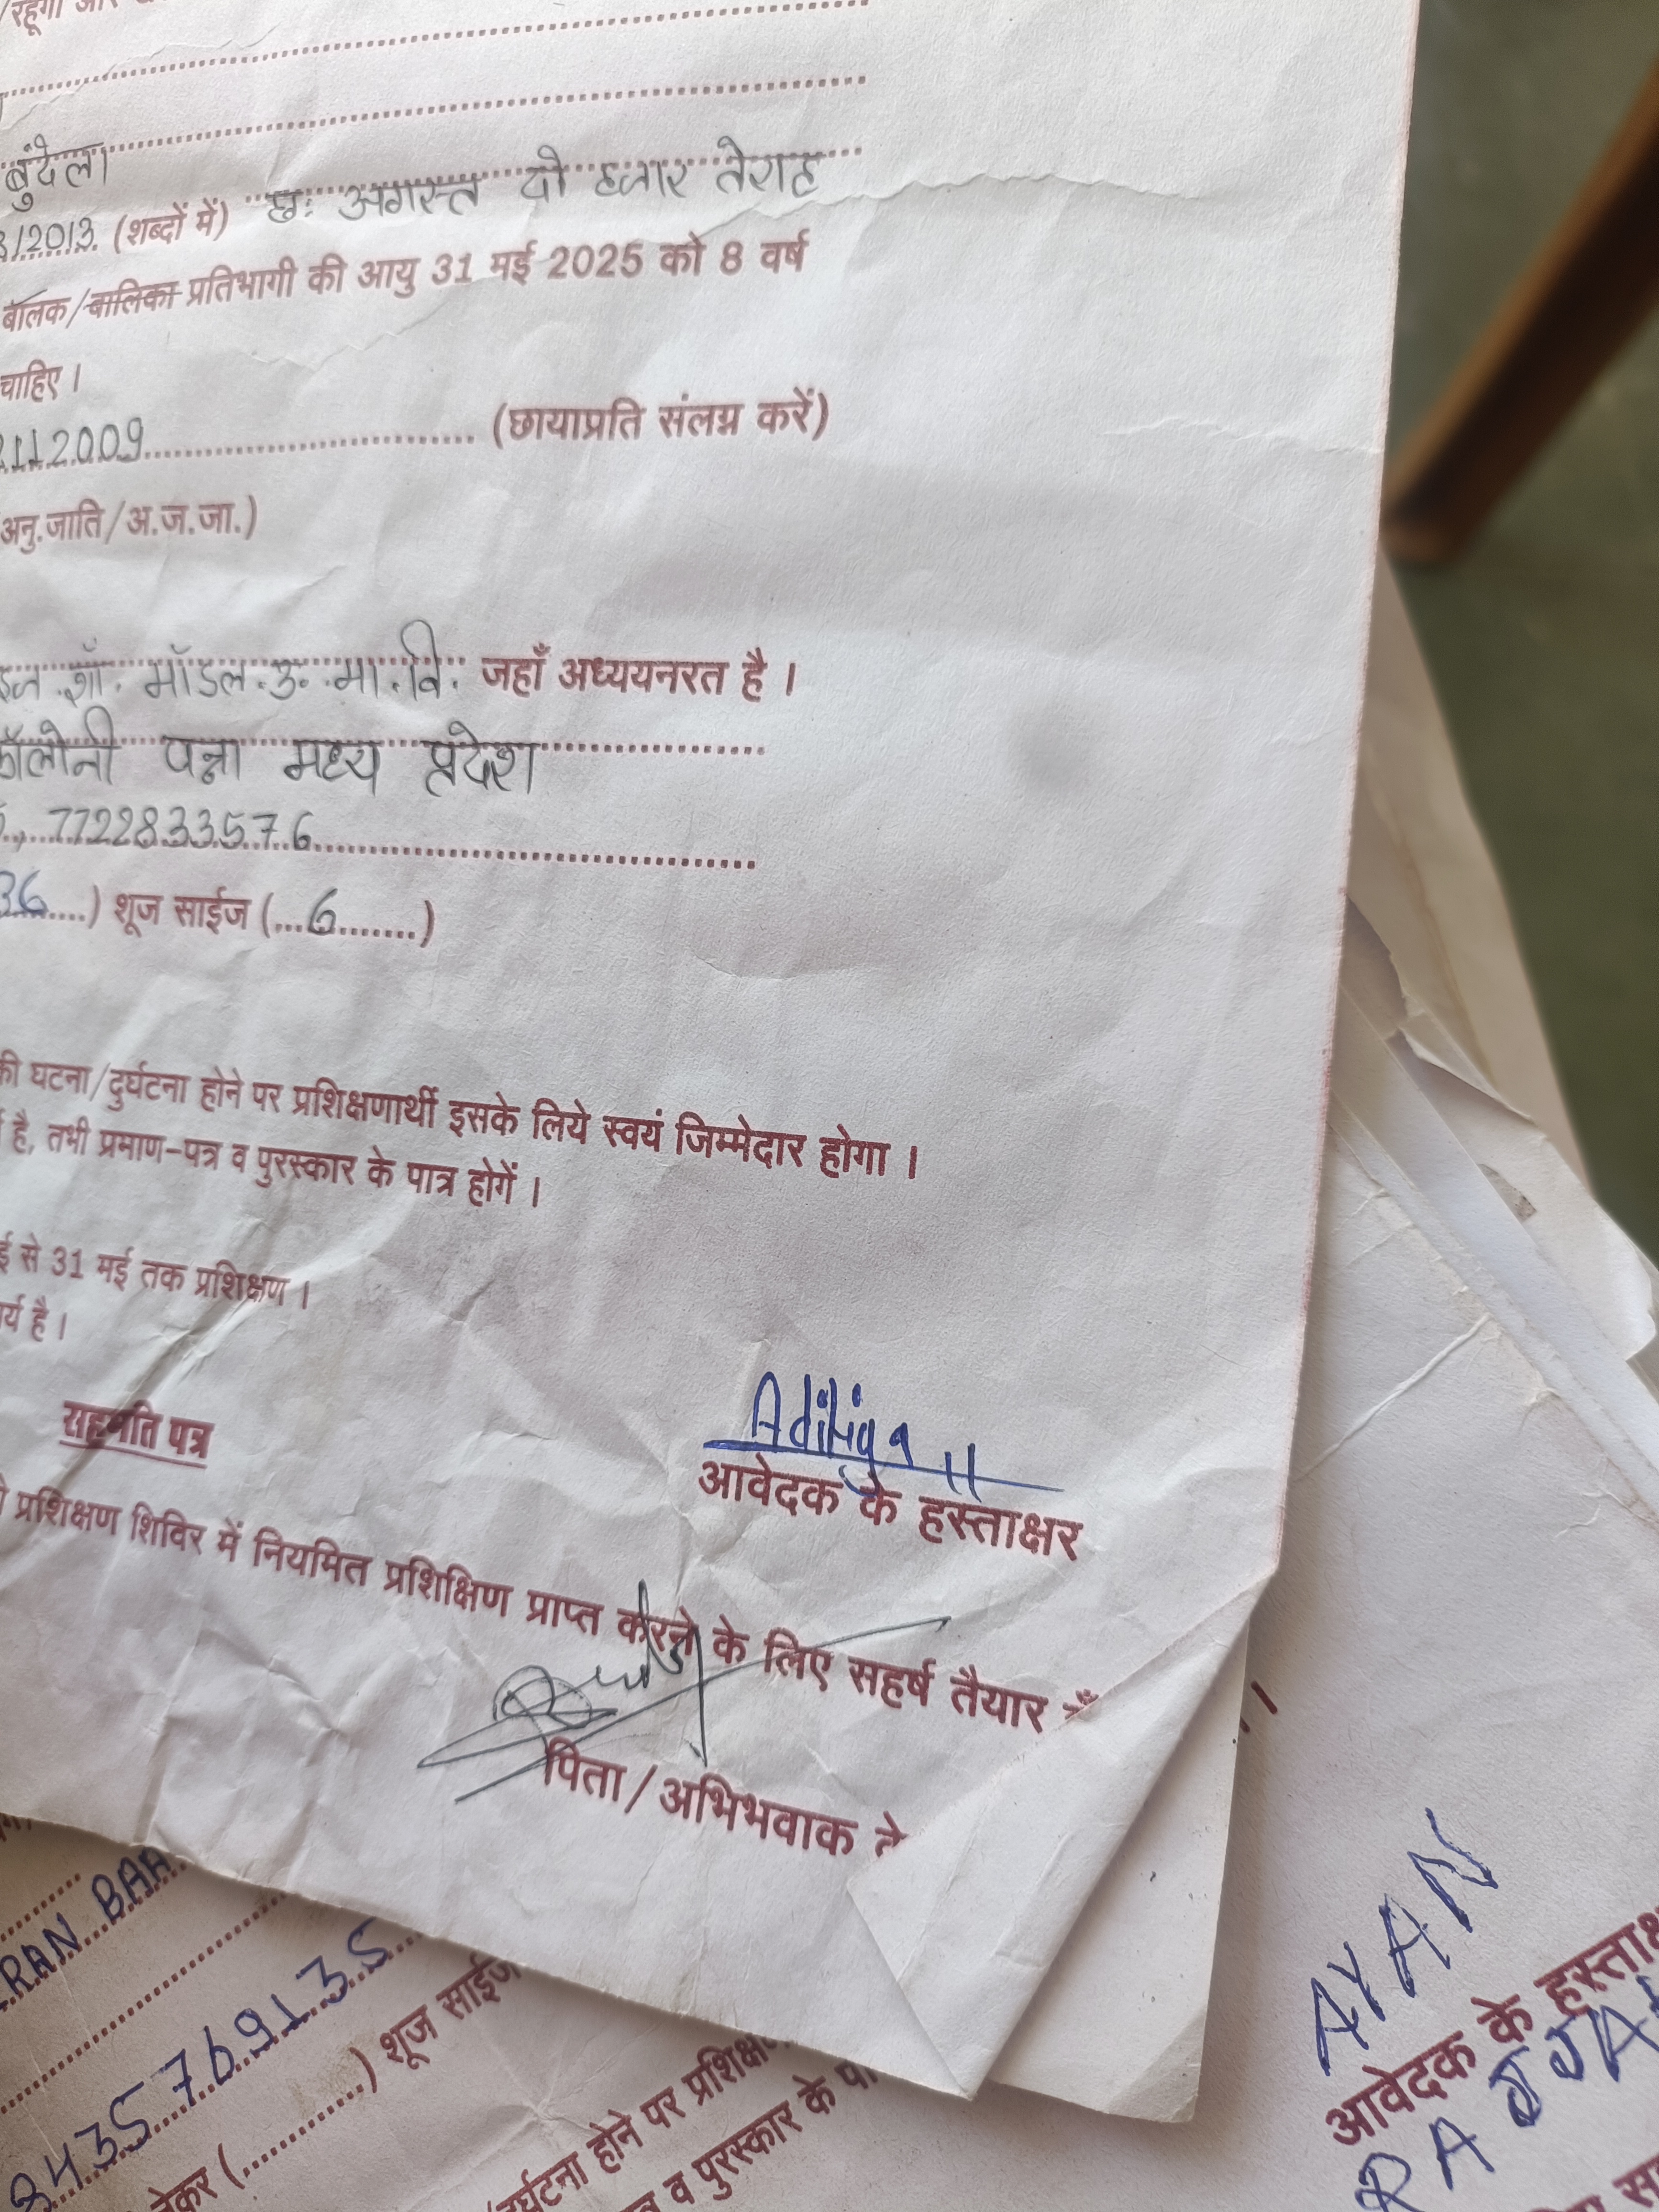 रहूंगा और
बुंदेला
8/2013. (शब्दों में) छः अगस्त दो हजार तेराह
बालक/बालिका प्रतिभागी की आयु 31 मई 2025 को 8 वर्ष
चाहिए ।
112009 (छायाप्रति संलग्न करें)
अनु.जाति/अ.ज.जा.)
शॉ. मॉडल.उ.मा.वि. जहाँ अध्ययनरत है ।
कॉलोनी पन्ना मध्य प्रदेश
7722833576
36 ) शूज साईज ( 6 )
की घटना/दुर्घटना होने पर प्रशिक्षणार्थी इसके लिये स्वयं जिम्मेदार होगा ।
है, तभी प्रमाण-पत्र व पुरस्कार के पात्र होगें ।
ई से 31 मई तक प्रशिक्षण ।
र्य है ।
Aditiya
आवेदक के हस्ताक्षर
सहमति पत्र
प्रशिक्षण शिविर में नियमित प्रशिक्षिण प्राप्त करने के लिए सहर्ष तैयार हूँ
पिता/अभिभवाक के
RAN BAA
8435769135
लेकर ( ) शूज साईज
दुर्घटना होने पर प्रशिक्षण
व पुरस्कार के पा
AYAN
आवेदक के हस्ताक्ष